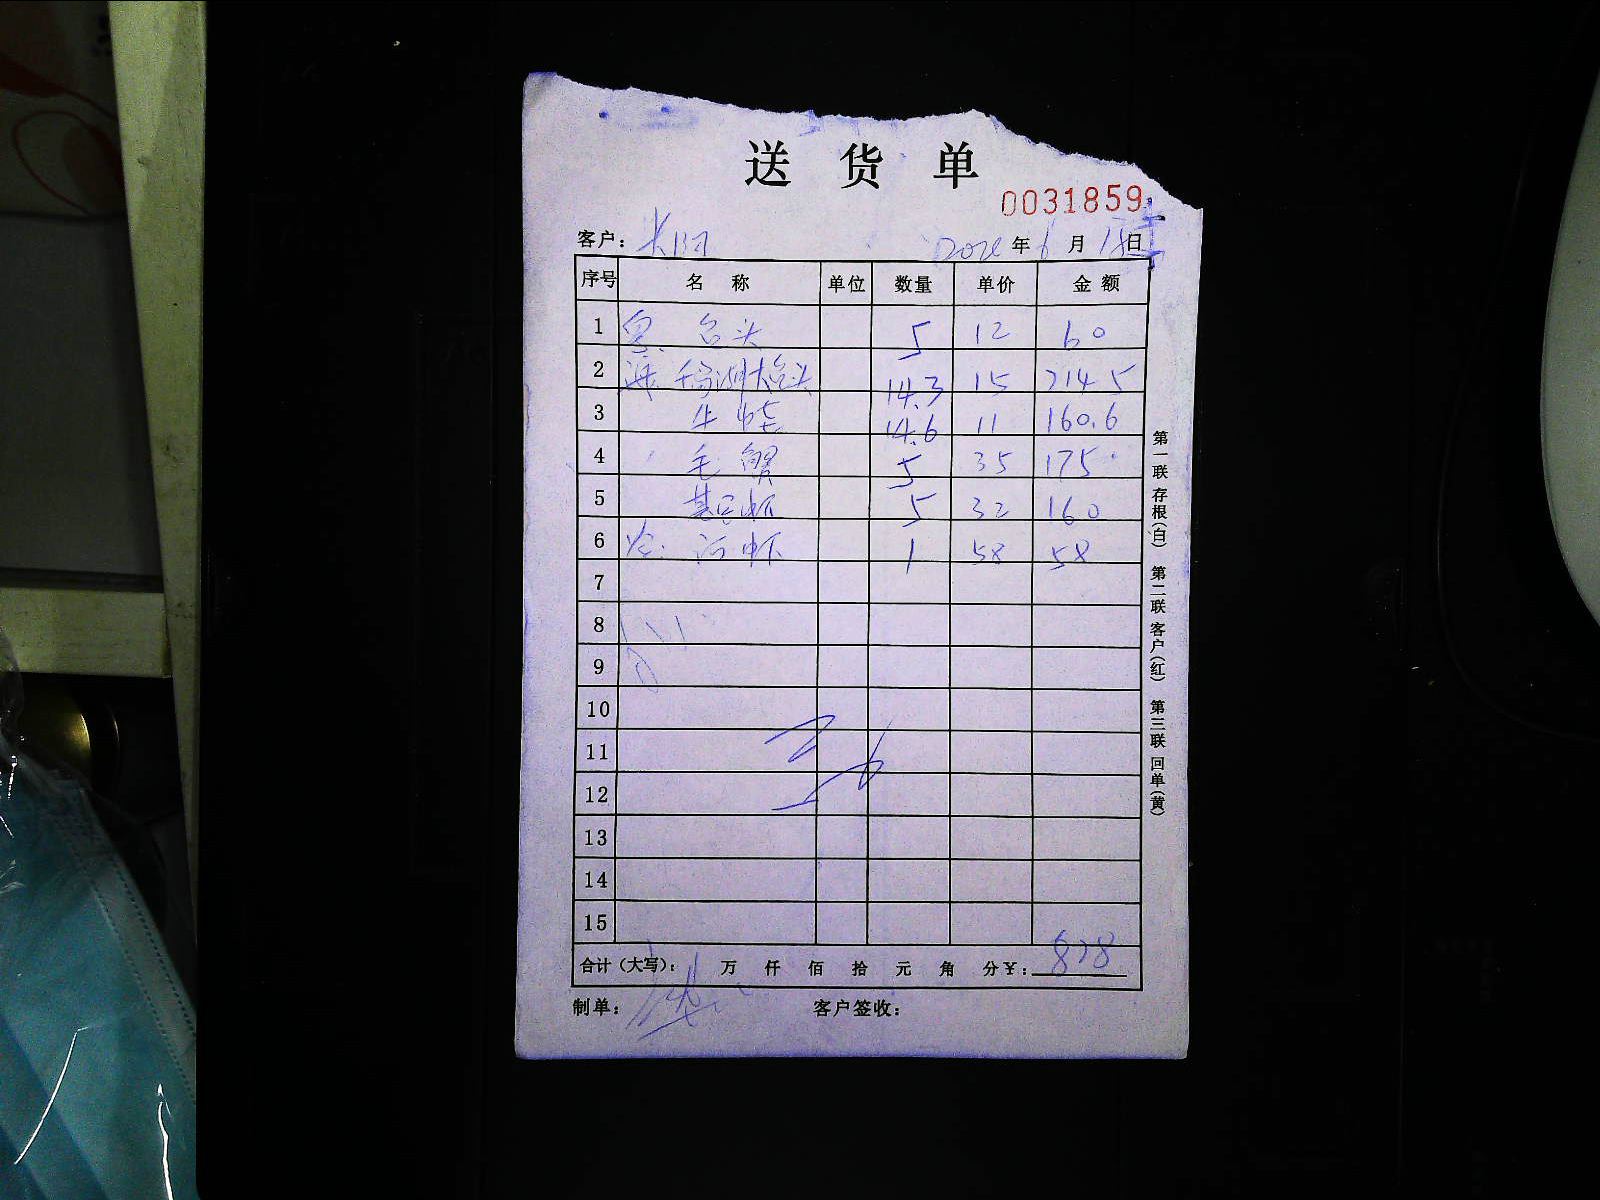 送 货 单
0031859
客户: 大阳 年 6 月 18 日
序号 名 称 单位 数量 单价 金额
1 包头 5 12 60
2 千岛湖大包头 14.3 15 214.5
3 牛蛙 14.6 11 160.6
4 毛蟹 5 35 175
5 基尾虾 5 32 160
6 河虾 1 58 58
7
8
9
10
11
12
13
14
15
合计(大写): 万 仟 佰 拾 元 角 分¥: 828
制单: 客户签收:
第一联 存根(白) 第二联 客户(红) 第三联 回单(黄)